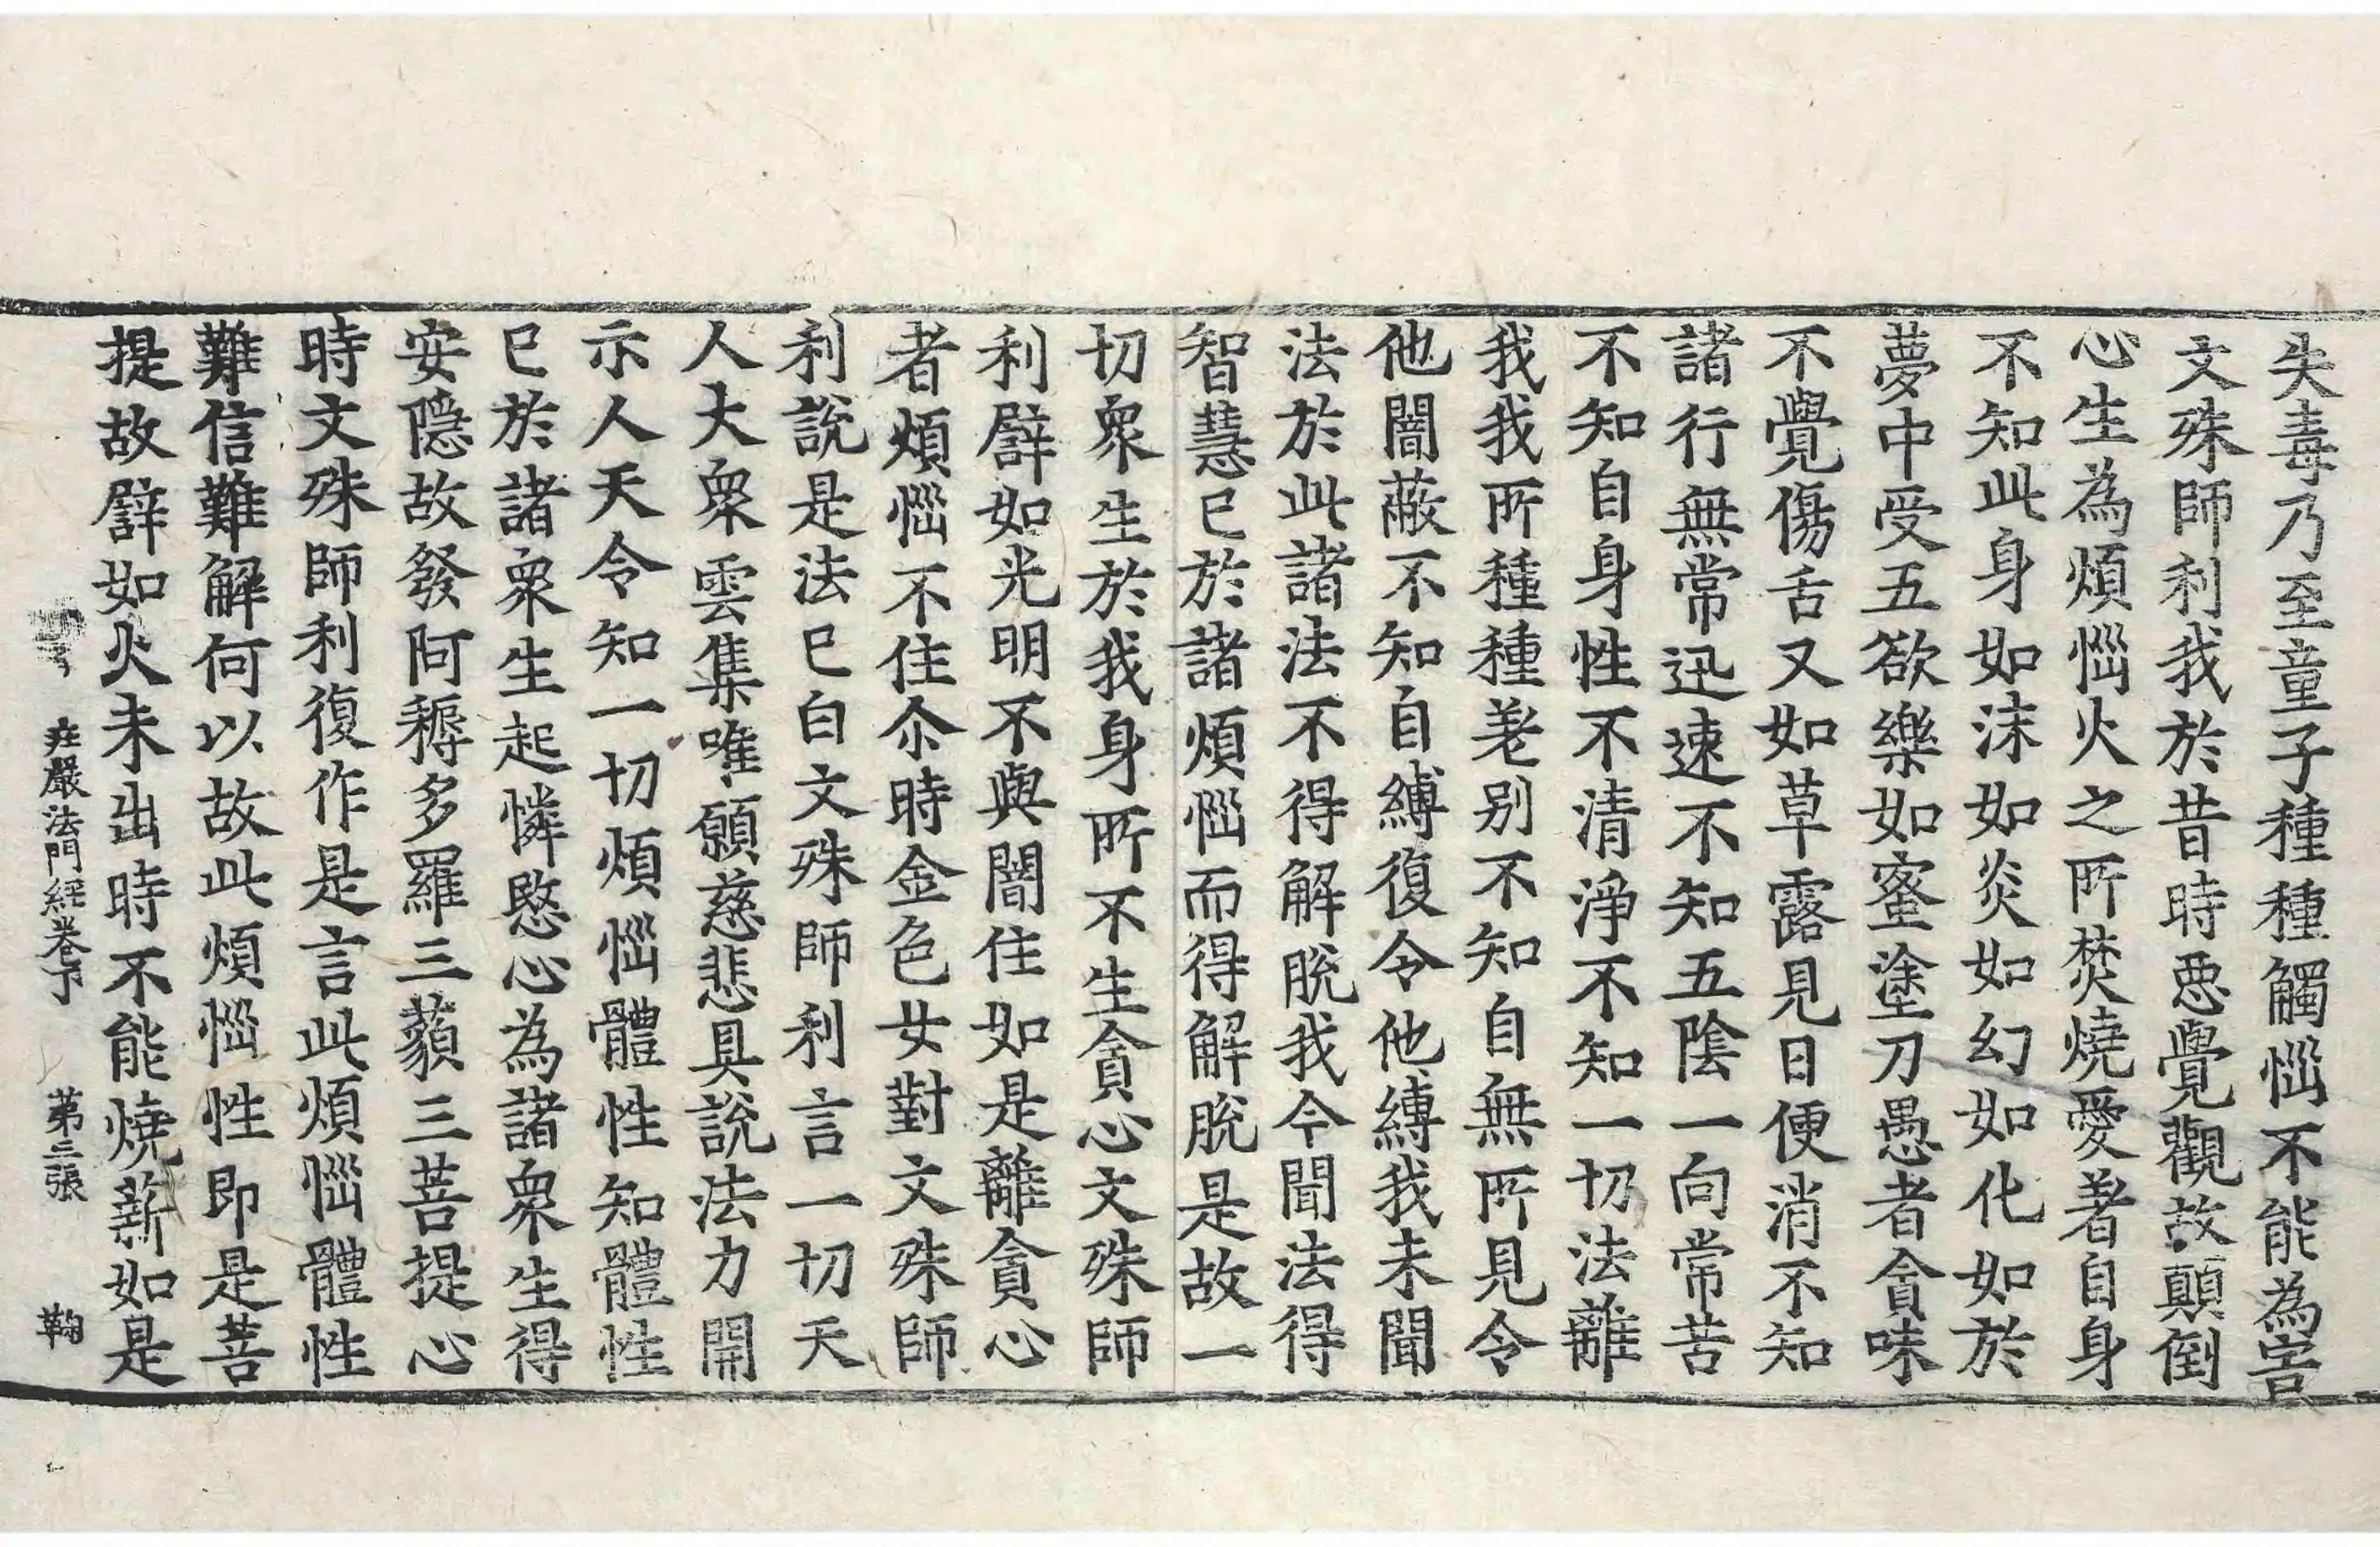 失毒乃至童子種種觸惱不能為害
文殊師利我於昔時惡覺觀故顛倒
心生為煩惱火之所焚燒愛著自身
不知此身如沫如炎如幻如化如於
夢中受五欲樂如蜜塗刀愚者貪味
不覺傷舌又如草露見日便消不知
諸行無常迅速不知五陰一向常苦
不知自身性不清淨不知一切法離
我我所種種差别不知自無所見令
他闇蔽不知自縛復令他縛我未聞
法於此諸法不得解脫我今聞法得
智慧已於諸煩惱而得解脫是故一
切衆生於我身所不生貪心文殊師
利譬如光明不與闇住如是離貪心
者煩惱不住尒時金色女對文殊師
利說是法已白文殊師利言一切天
人大衆雲集唯願慈悲具說法力開
示人天令知一切煩惱體性知體性
已於諸衆生起憐愍心為諸衆生得
安隱故發阿耨多羅三藐三菩提心
時文殊師利復作是言此煩惱體性
難信難解何以故此煩惱性即是菩
提故譬如火未出時不能燒薪如是
庄嚴法門經卷下 第三張 鞠